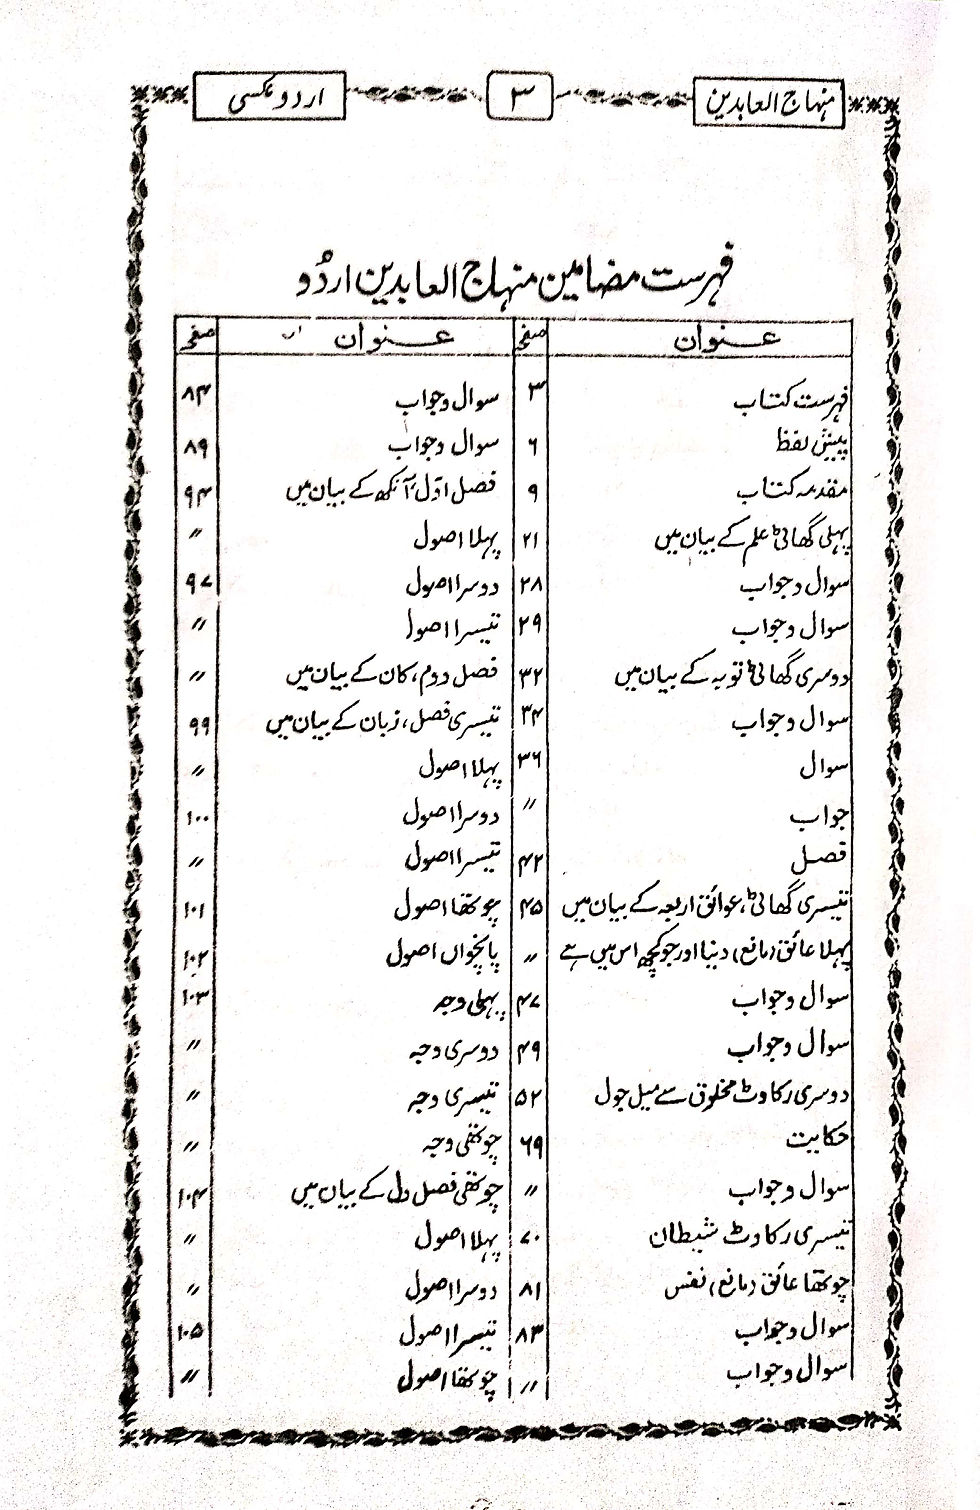 منہاج العابدین ۳ اردو عکسی
فہرست مضامین منہاج العابدین اردُو
عنوان صفحہ عنوان صفحہ
فہرست کتاب ۳ سوال وجواب ۸۴
پیش لفظ ۶ سوال وجواب ۸۹
مقدمہ کتاب ۹ فصل اوّل، آنکھ کے بیان میں ۹۴
پہلی گھاٹی علم کے بیان میں ۲۱ پہلا اصول 〃
سوال وجواب ۲۸ دوسرا اصول ۹۷
سوال وجواب ۲۹ تیسرا اصول 〃
دوسری گھاٹی توبہ کے بیان میں ۳۲ فصل دوم، کان کے بیان میں 〃
سوال وجواب ۳۴ تیسری فصل، زبان کے بیان میں ۹۹
سوال ۳۶ پہلا اصول 〃
جواب 〃 دوسرا اصول ۱۰۰
فصل ۴۲ تیسرا اصول 〃
تیسری گھاٹی، عوائق اربعہ کے بیان میں ۴۵ چوتھا اصول ۱۰۱
پہلا عائق (مانع) دنیا اور جو کچھ اس میں ہے 〃 پانچواں اصول ۱۰۲
سوال وجواب ۴۷ پہلی وجہ ۱۰۳
سوال وجواب ۴۹ دوسری وجہ 〃
دوسری رکاوٹ مخلوق سے میل جول ۵۲ تیسری وجہ 〃
حکایت ۶۹ چوتھی وجہ 〃
سوال وجواب 〃 چوتھی فصل دل کے بیان میں ۱۰۴
تیسری رکاوٹ شیطان ۷۰ پہلا اصول 〃
چوتھا عائق (مانع) نفس ۸۱ دوسرا اصول 〃
سوال وجواب ۸۳ تیسرا اصول ۱۰۵
سوال وجواب 〃 چوتھا اصول 〃